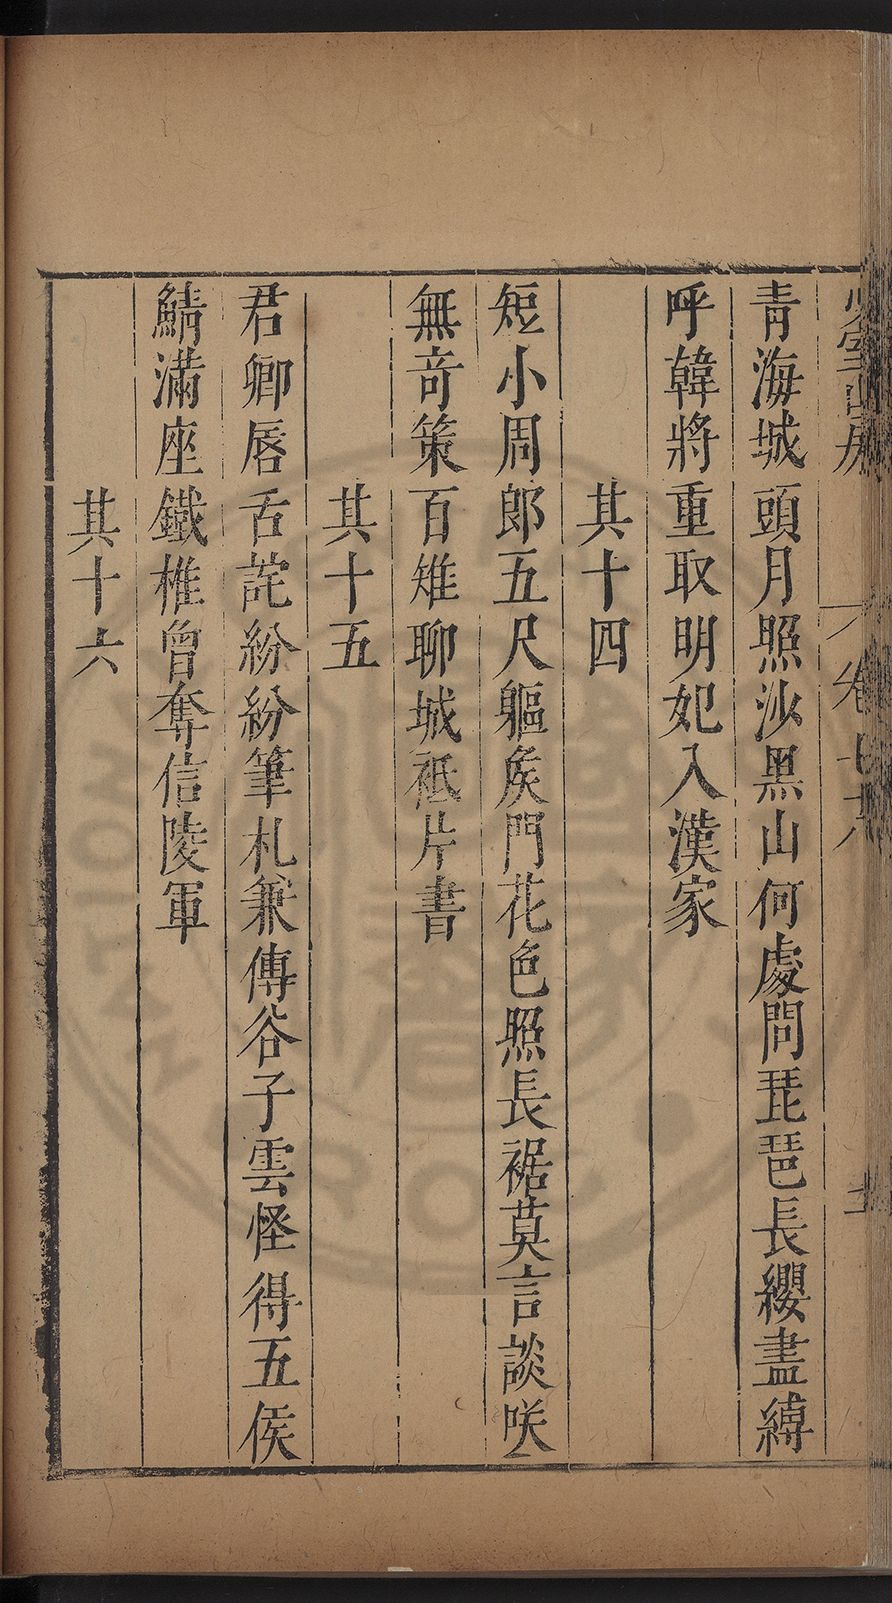 青海城頭月照沙黒山何處問琵琶長纓盡縛
呼韓將重取明妃入漢家
其十四
短小周郎五尺軀矦門花色照長裾莫言談咲
無竒策百雉聊城祗片書
其十五
君卿唇舌詫紛紛筆札兼傳谷子雲怪得五侯
鯖滿座鐵椎曾奪信陵軍
其十六